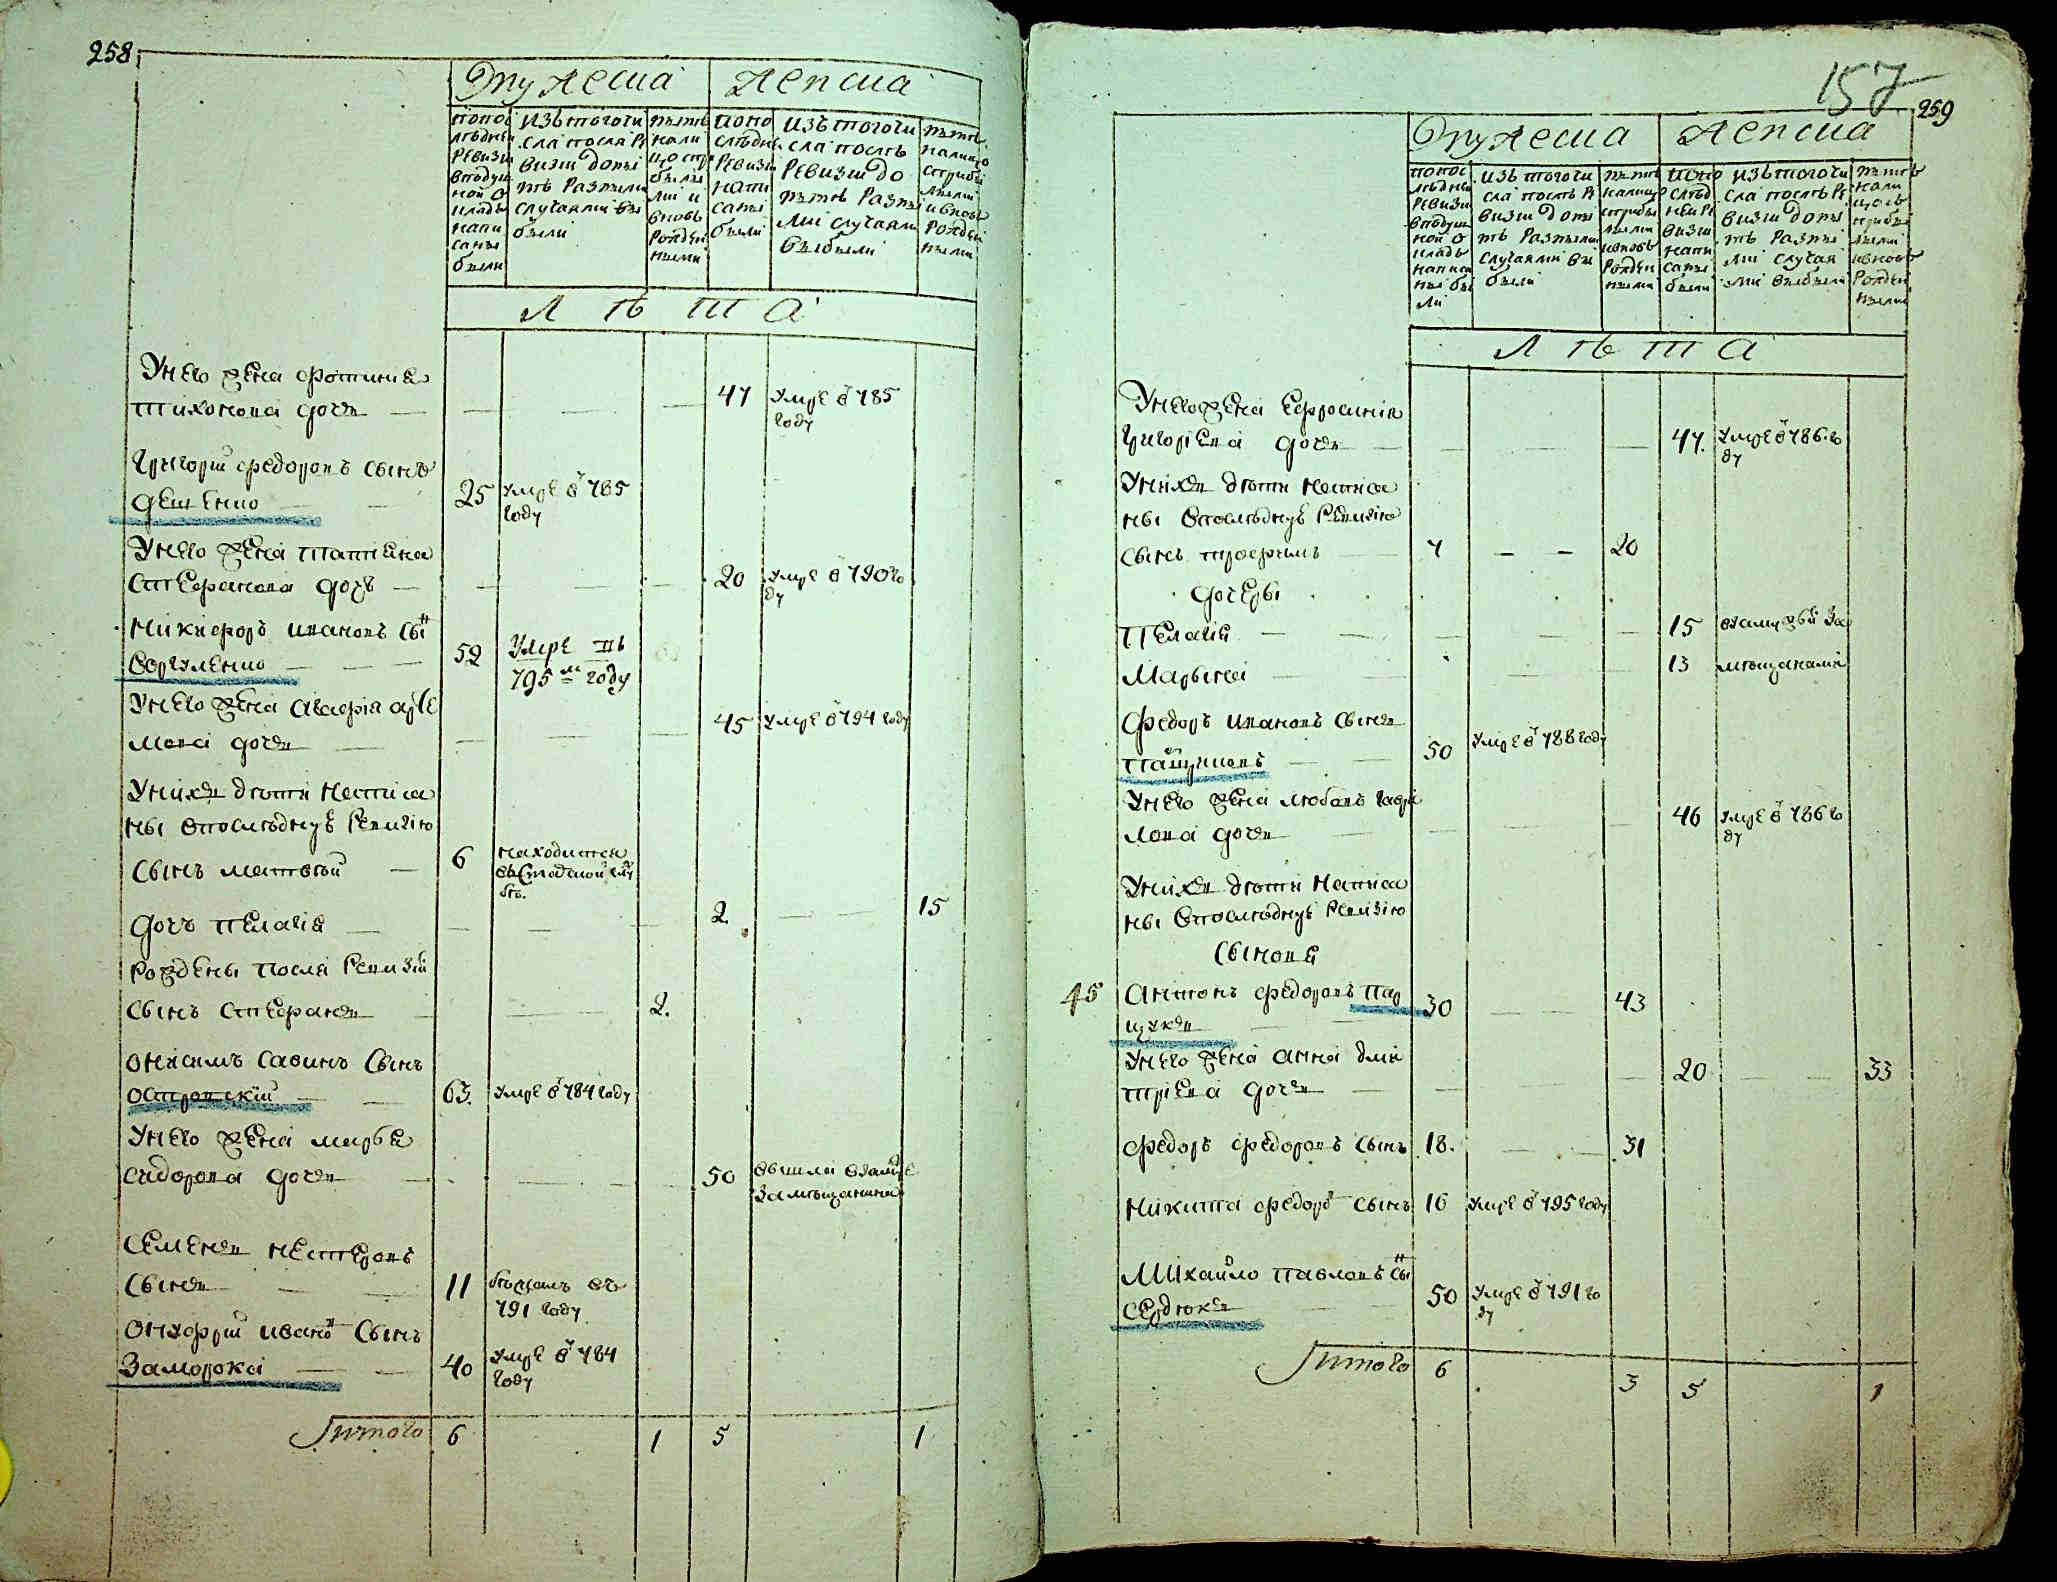 258
Мужеска Женска
по пос
лѣдней
ревизи
в подуш
ной о
кладъ
напи
саны
были
изъ того чи
сла посля ре
визи до ны
нѣ разными
случаями вы
были
нынѣ
нали
цо съ при
былы
ми и
вновь
рожден
ными
по по
слѣдней
ревизи
напи
саны
были
изъ того чи
сла послѣ
ревизи до
нынѣ разны
ми случаями
выбыли
нынѣ
налицо
с прибы
лыми
и вновь
рожден
ными
Л ѣ т а
У него жена Фотиния
Тихонова дочь — — — — 47 умре в 785
году
Григорий Федоровъ сынъ
Дешенко — — 25 умре в 785
году
У него жена Татиана
Стефанова дочь — — — — 20 умре в 790 го
ду
Никифоръ Ивановъ сын
Воргуленко — — — 52 Умре въ
795м году
У него жена
мова дочь — — — — 45 умре в 794 году
У нихъ дѣти написа
ны в послѣдную ревизию
сынъ Матвей — 6 находится
бѣ.
дочь Пелагия — — — — 2 — — 15
рождены посля ревизии
сынъ Стефанъ — — — 2.
Онисимъ Савинъ сынъ
Островский — — 63. умре в 784 году
У него жена Марья
Сидорова дочь — — — — 50 вышла взамуж
за мещанина
Семенъ Нестеровъ
сынъ — — 11 бѣжалъ въ
791 году
Онуфрий Иванов сынъ
Заморока — — 40 умре в 784
году
Итого 6 1 5 1
157
259
Мужеска Женска
по пос
лѣдней
ревизи
в подуш
ной о
кладъ
написа
ны бы
ли
изъ того чи
сла послѣ ре
визи до ны
нѣ разными
случаями вы
были
нынѣ
налицо
с прибы
лыми
и вновь
рожден
ными
по по
слѣд
ней ре
визи
напи
саны
были
изъ того чи
сла послѣ ре
визи до ны
нѣ разны
ми случая
ми выбыли
нынѣ
нали
цо съ
прибы
лыми
и вновь
рожден
ными
Л ѣ т а
У него жена Ефросиния
Григориева дочь — — — — 47. умре в 786 го
ду
У нихъ дѣти написа
ны в послѣдную ревизию
сынъ Трофимъ — 7 — — 20
дочеры
Пелагия — — — — — 15 взамужствѣ за
Марына — — — — 13 мещанами
Федоръ Ивановъ сынъ
— — 50 умре в 788 году
У него жена Любовь Гаври
лова дочь — — — — 46 умре в 786 го
ду
У нихъ дѣти написа
ны в послѣдную ревизию
сыновя
45 Антонъ Федоровъ Пар
щукъ — — 30 — — 43
У него жена Анна Дми
триева дочь — — — — 20 — — 33
Федоръ Федоровъ сынъ 18. — — 31
Никита Федоров сынъ 16 умре в 795 году
Михайло Павловъ сын
Сердюкъ — — 50 умре в 791 го
ду
Итого 6 3 5 1